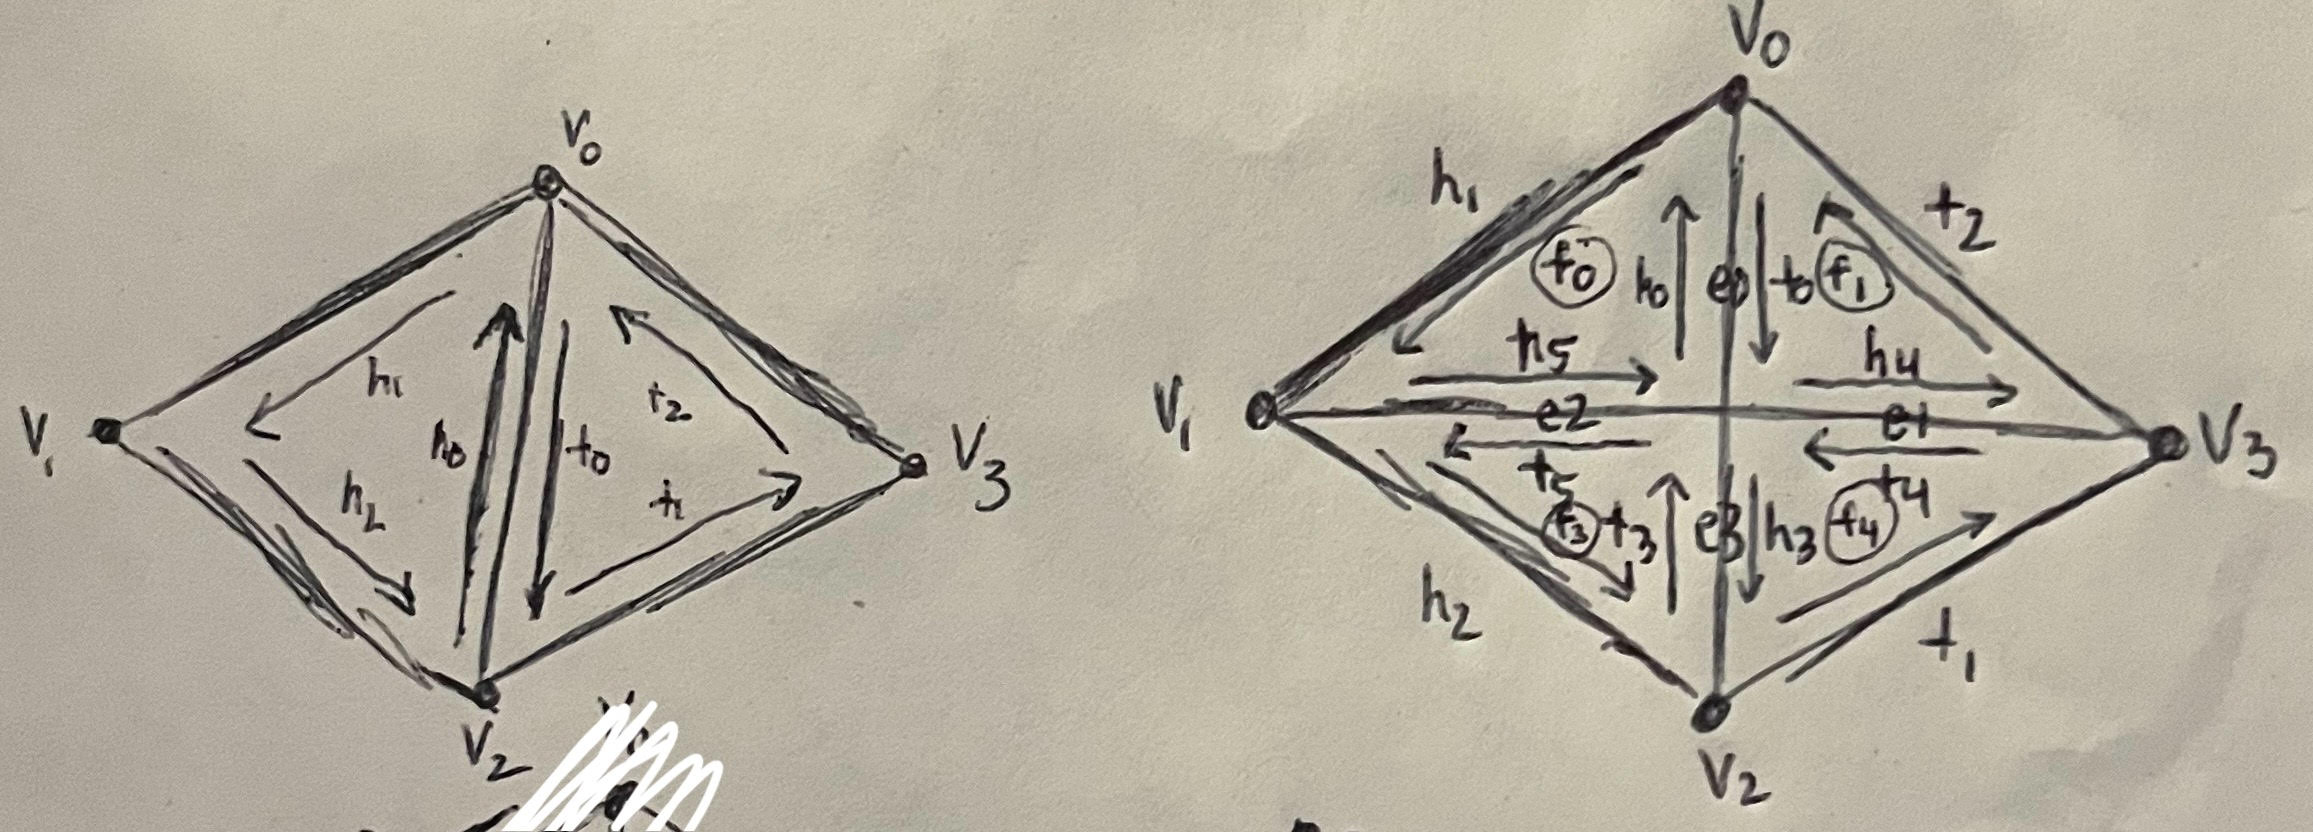 V0
V1
h1
h2
h0
t0
t2
t1
V3
V2
V0
h1
t2
f0
h0
e0
t0
f1
h5
h4
V1
e2
e1
V3
t5
t4
f3
t3
e3
h3
f4
h2
t1
V2